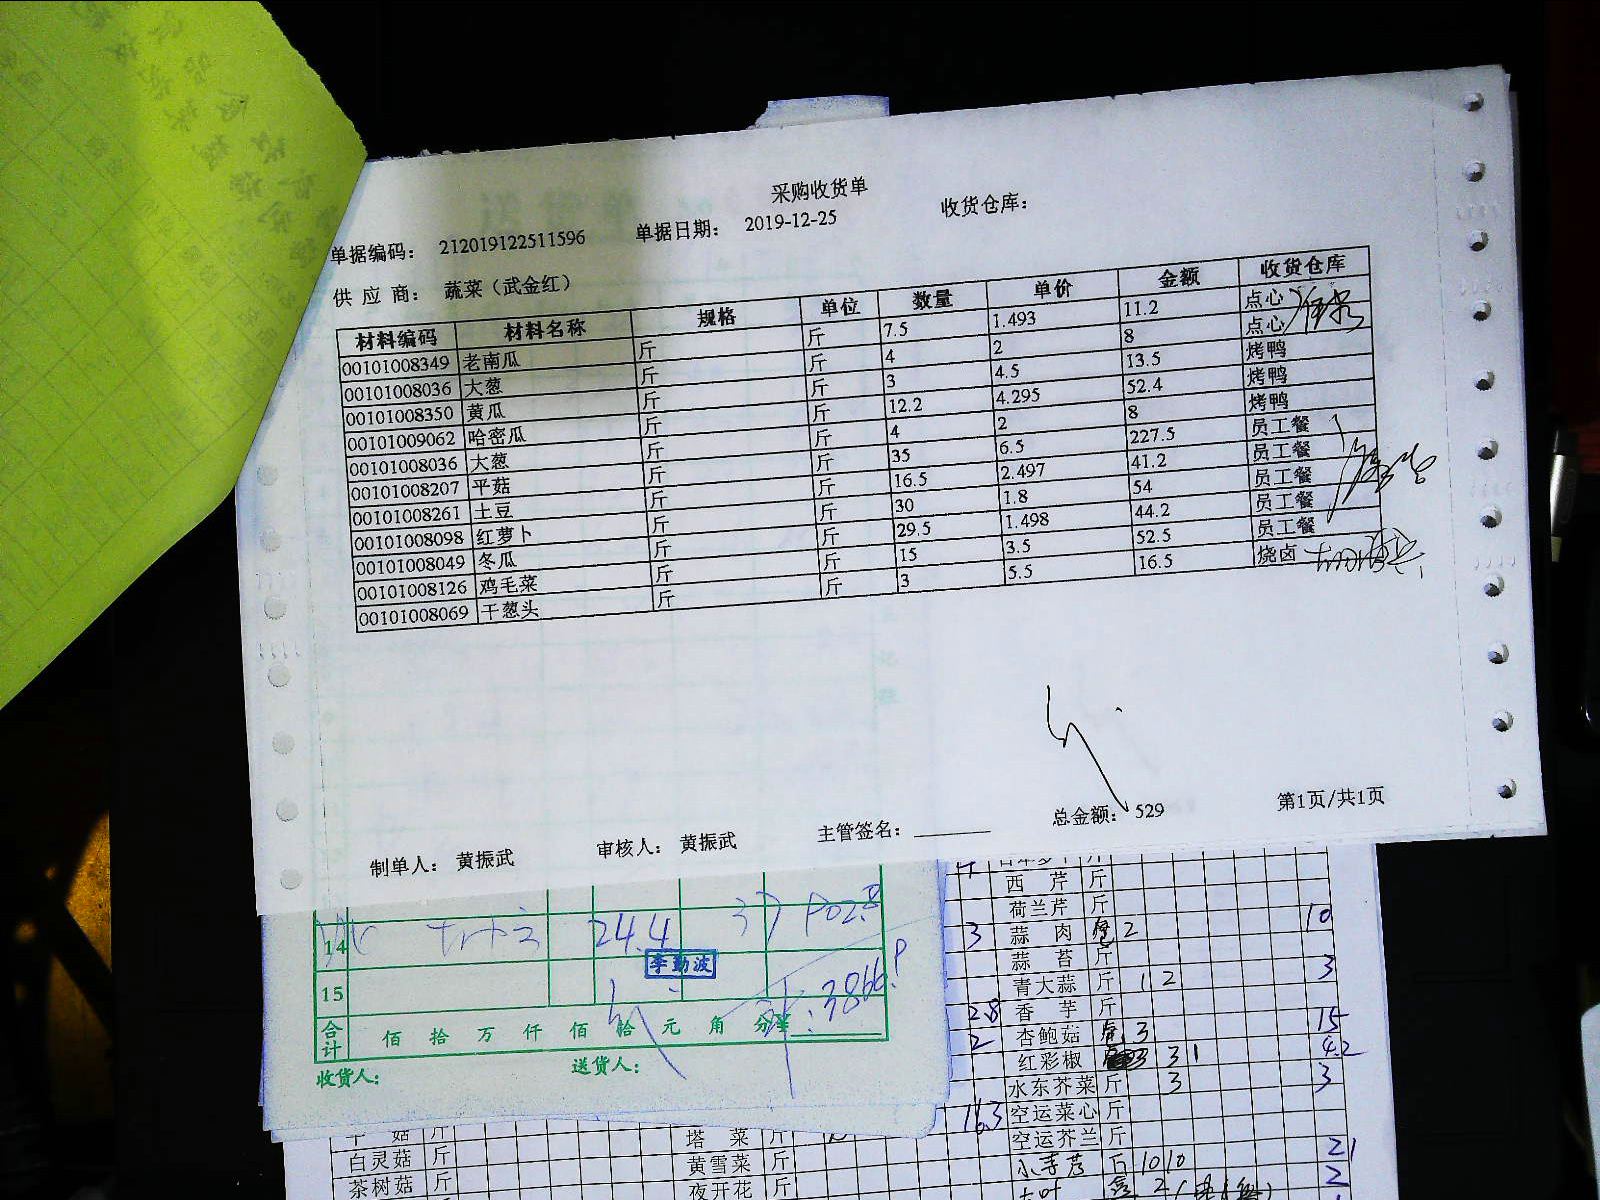 采购收货单
单据编码: 212019122511596 单据日期: 2019-12-25 收货仓库:
供 应 商: 蔬菜（武金红）
材料编码 材料名称 规格 单位 数量 单价 金额 收货仓库
00101008349 老南瓜 斤 斤 7.5 1.493 11.2 点心
00101008036 大葱 斤 斤 4 2 8 点心
00101008350 黄瓜 斤 斤 3 4.5 13.5 烤鸭
00101009062 哈密瓜 斤 斤 12.2 4.295 52.4 烤鸭
00101008036 大葱 斤 斤 4 2 8 烤鸭
00101008207 平菇 斤 斤 35 6.5 227.5 员工餐
00101008261 土豆 斤 斤 16.5 2.497 41.2 员工餐
00101008098 红萝卜 斤 斤 30 1.8 54 员工餐
00101008049 冬瓜 斤 斤 29.5 1.498 44.2 员工餐
00101008126 鸡毛菜 斤 斤 15 3.5 52.5 员工餐
00101008069 干葱头 斤 斤 3 5.5 16.5 烧卤
制单人: 黄振武 审核人: 黄振武 主管签名: 总金额: 529 第1页/共1页
14 24.4
李勤波
15
合计 佰 拾 万 仟 佰 拾 元 角 分
收货人: 送货人:
西 芹 斤
荷兰芹 斤
3 蒜 肉 2 10
蒜 苔 斤
青大蒜 斤 1 2 3
2.8 香 芋 斤
2 杏鲍菇 3 15
红彩椒 3 3 1 4.2
水东芥菜 斤 3 3
16.3 空运菜心 斤
空运芥兰 斤
塔 菜 斤
白灵菇 斤 黄雪菜 斤 10 10 21
茶树菇 斤 夜开花 斤 2 2